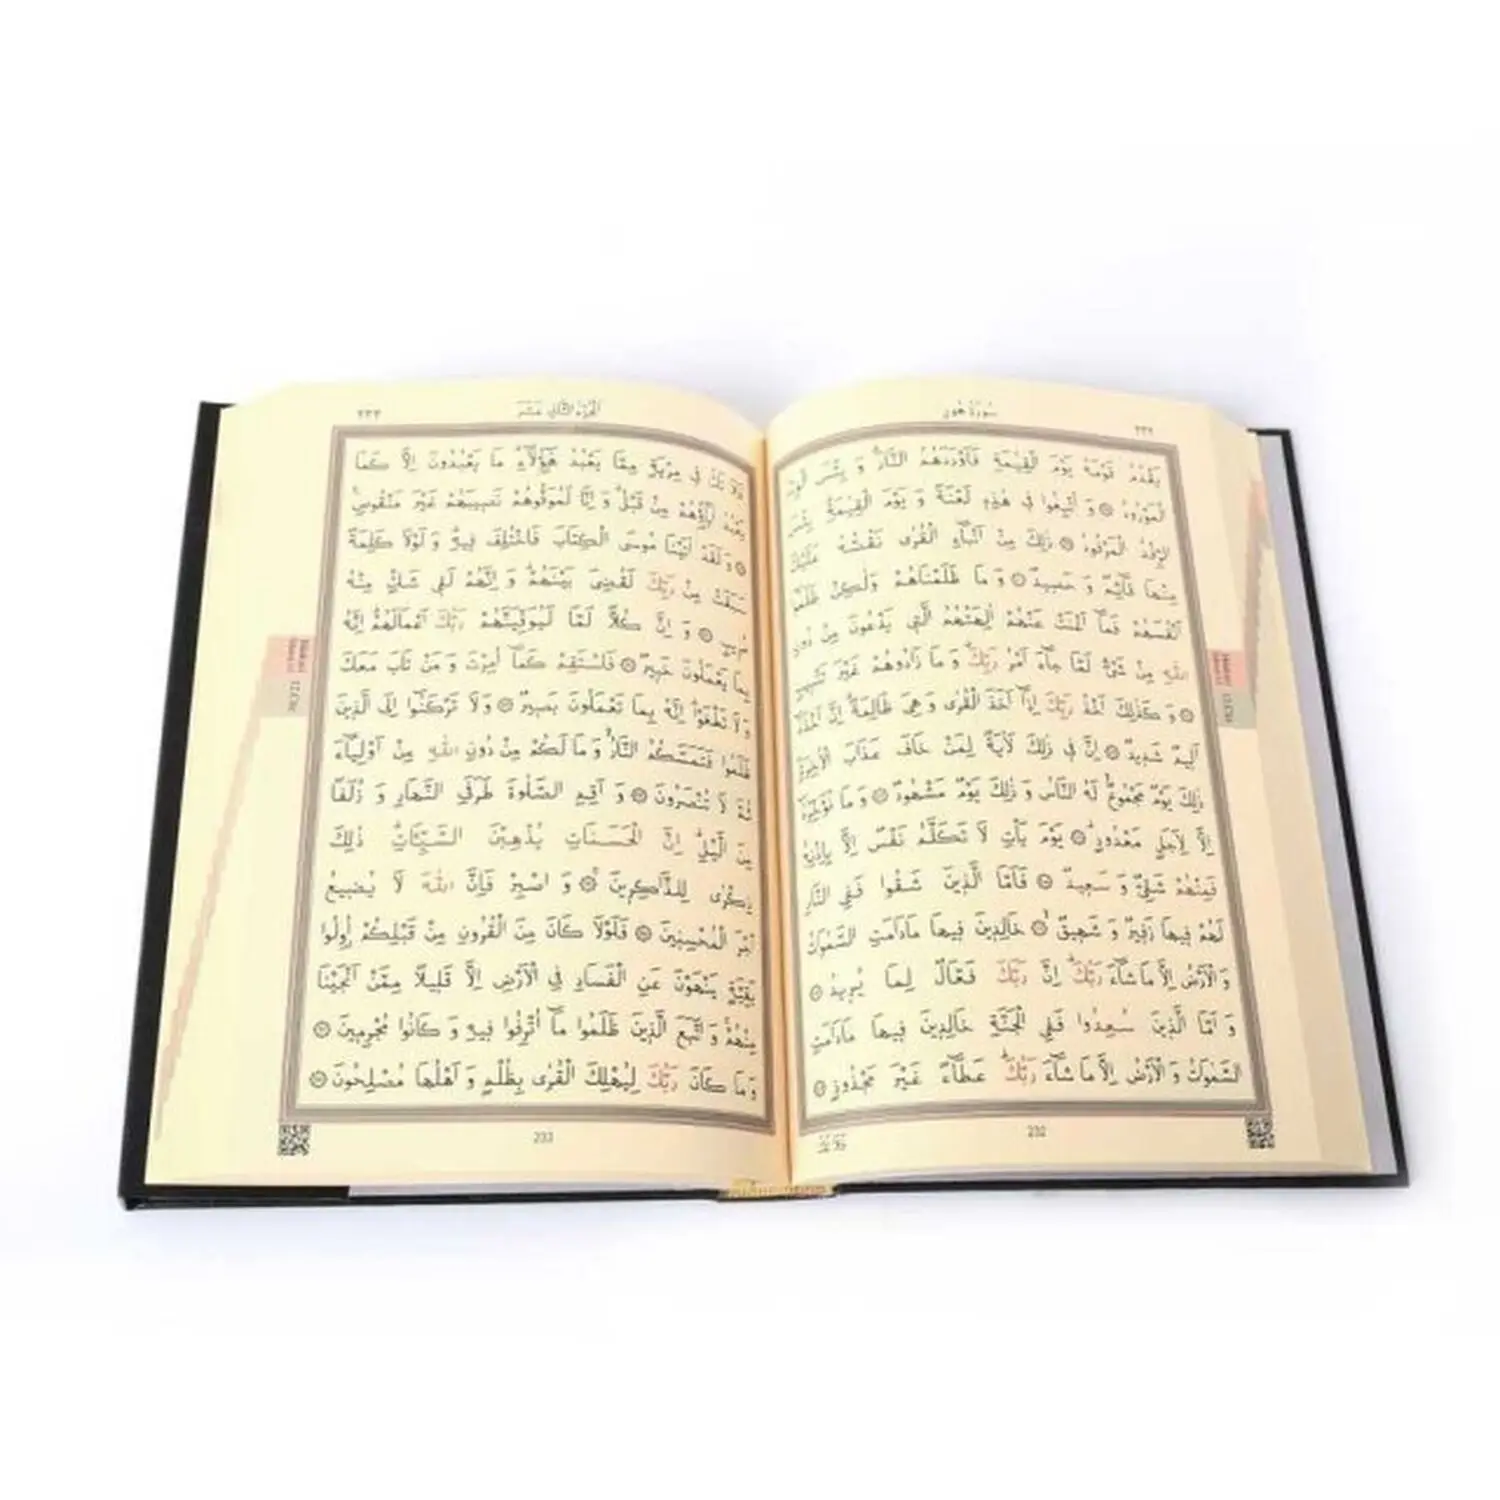 سُورَةُ هُودٍ
٢٣٢
يَقْدُمُ قَوْمَهُ يَوْمَ الْقِيٰمَةِ فَاَوْرَدَهُمُ النَّارَ وَ بِئْسَ الْوِرْدُ
الْمَوْرُودُ ۞ وَ اُتْبِعُوا فٖي هٰذِهٖ لَعْنَةً وَ يَوْمَ الْقِيٰمَةِ بِئْسَ
الرِّفْدُ الْمَرْفُودُ ۞ ذٰلِكَ مِنْ اَنْبَٓاءِ الْقُرٰى نَقُصُّهُ عَلَيْكَ
مِنْهَا قَٓائِمٌ وَ حَصٖيدٌ ۞ وَ مَا ظَلَمْنَاهُمْ وَلٰكِنْ ظَلَمُٓوا
اَنْفُسَهُمْ فَمَٓا اَغْنَتْ عَنْهُمْ اٰلِهَتُهُمُ الَّتٖي يَدْعُونَ مِنْ دُونِ
اللّٰهِ مِنْ شَيْءٍ لَمَّا جَٓاءَ اَمْرُ رَبِّكَ وَ مَا زَادُوهُمْ غَيْرَ تَتْبٖيبٍ
۞ وَ كَذٰلِكَ اَخْذُ رَبِّكَ اِذَٓا اَخَذَ الْقُرٰى وَ هِيَ ظَالِمَةٌ اِنَّ اَخْذَهُٓ
اَلٖيمٌ شَدٖيدٌ ۞ اِنَّ فٖي ذٰلِكَ لَاٰيَةً لِمَنْ خَافَ عَذَابَ الْاٰخِرَةِ
ذٰلِكَ يَوْمٌ مَجْمُوعٌ لَهُ النَّاسُ وَ ذٰلِكَ يَوْمٌ مَشْهُودٌ ۞ وَ مَا نُؤَخِّرُهُٓ
اِلَّا لِاَجَلٍ مَعْدُودٍ ۞ يَوْمَ يَاْتِ لَا تَكَلَّمُ نَفْسٌ اِلَّا بِاِذْنِهٖ
فَمِنْهُمْ شَقِيٌّ وَ سَعٖيدٌ ۞ فَاَمَّا الَّذٖينَ شَقُوا فَفِي النَّارِ
لَهُمْ فٖيهَا زَفٖيرٌ وَ شَهٖيقٌ ۞ خَالِدٖينَ فٖيهَا مَادَامَتِ السَّمٰوَاتُ
وَ الْاَرْضُ اِلَّا مَا شَٓاءَ رَبُّكَ اِنَّ رَبَّكَ فَعَّالٌ لِمَا يُرٖيدُ ۞
وَ اَمَّا الَّذٖينَ سُعِدُوا فَفِي الْجَنَّةِ خَالِدٖينَ فٖيهَا مَادَامَتِ
السَّمٰوَاتُ وَ الْاَرْضُ اِلَّا مَا شَٓاءَ رَبُّكَ عَطَٓاءً غَيْرَ مَجْذُوذٍ ۞
232
اَلْجُزْءُ الثَّانٖي عَشَرَ
٢٣٣
فَلَا تَكُ فٖي مِرْيَةٍ مِمَّا يَعْبُدُ هٰٓؤُلَٓاءِ مَا يَعْبُدُونَ اِلَّا كَمَا
يَعْبُدُ اٰبَٓاؤُهُمْ مِنْ قَبْلُ وَ اِنَّا لَمُوَفُّوهُمْ نَصٖيبَهُمْ غَيْرَ مَنْقُوصٍ
۞ وَ لَقَدْ اٰتَيْنَا مُوسَى الْكِتَابَ فَاخْتُلِفَ فٖيهِ وَ لَوْلَا كَلِمَةٌ
سَبَقَتْ مِنْ رَبِّكَ لَقُضِيَ بَيْنَهُمْ وَ اِنَّهُمْ لَفٖي شَكٍّ مِنْهُ
مُرٖيبٍ ۞ وَ اِنَّ كُلًّا لَمَّا لَيُوَفِّيَنَّهُمْ رَبُّكَ اَعْمَالَهُمْ اِنَّهُ
بِمَا يَعْمَلُونَ خَبٖيرٌ ۞ فَاسْتَقِمْ كَمَٓا اُمِرْتَ وَ مَنْ تَابَ مَعَكَ
وَ لَا تَطْغَوْا اِنَّهُ بِمَا تَعْمَلُونَ بَصٖيرٌ ۞ وَ لَا تَرْكَنُٓوا اِلَى الَّذٖينَ
ظَلَمُوا فَتَمَسَّكُمُ النَّارُ وَ مَا لَكُمْ مِنْ دُونِ اللّٰهِ مِنْ اَوْلِيَٓاءَ
ثُمَّ لَا تُنْصَرُونَ ۞ وَ اَقِمِ الصَّلٰوةَ طَرَفَيِ النَّهَارِ وَ زُلَفًا
مِنَ الَّيْلِ اِنَّ الْحَسَنَاتِ يُذْهِبْنَ السَّيِّـَٔاتِ ذٰلِكَ
ذِكْرٰى لِلذَّاكِرٖينَ ۞ وَ اصْبِرْ فَاِنَّ اللّٰهَ لَا يُضٖيعُ
اَجْرَ الْمُحْسِنٖينَ ۞ فَلَوْلَا كَانَ مِنَ الْقُرُونِ مِنْ قَبْلِكُمْ اُولُوا
بَقِيَّةٍ يَنْهَوْنَ عَنِ الْفَسَادِ فِي الْاَرْضِ اِلَّا قَلٖيلًا مِمَّنْ اَنْجَيْنَا
مِنْهُمْ وَ اتَّبَعَ الَّذٖينَ ظَلَمُوا مَٓا اُتْرِفُوا فٖيهِ وَ كَانُوا مُجْرِمٖينَ ۞
وَ مَا كَانَ رَبُّكَ لِيُهْلِكَ الْقُرٰى بِظُلْمٍ وَ اَهْلُهَا مُصْلِحُونَ ۞
233